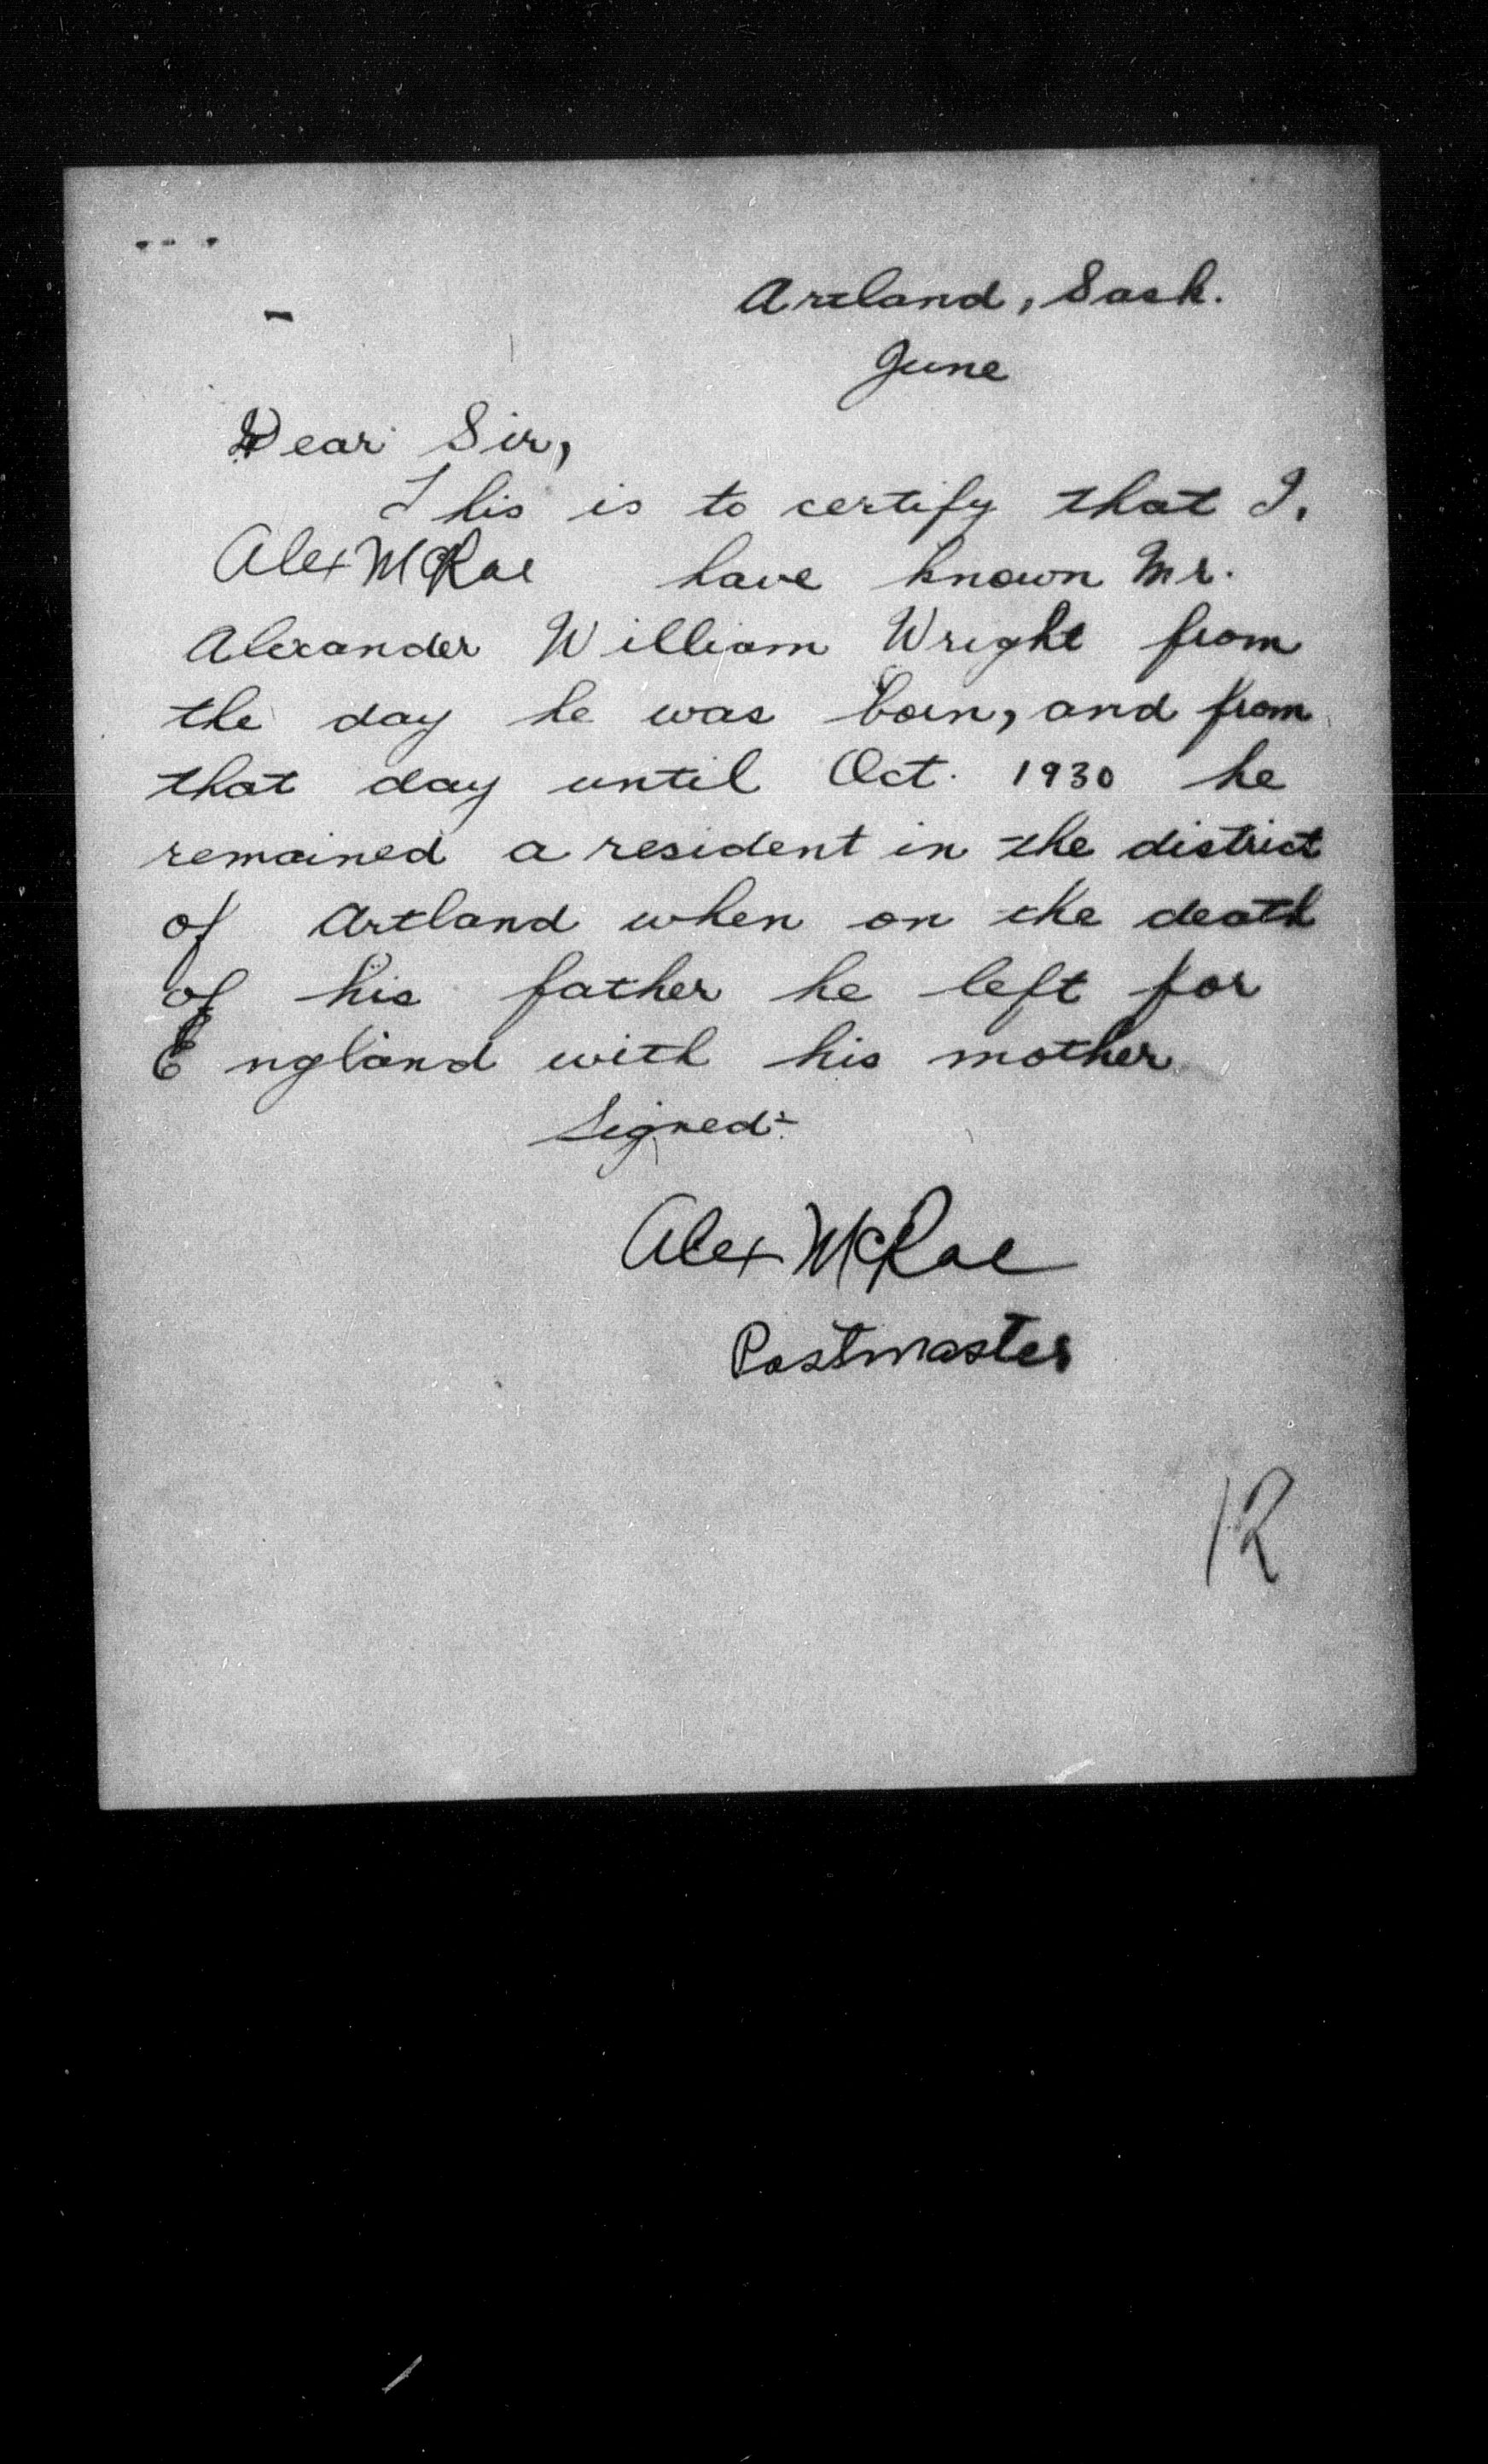 Artland, Sask.
June
Dear Sir,
This is to certify that I.
Alex McRae have known Mr.
Alexander William Wright from
the day he was born, and from
that day until Oct. 1930 he
remained a resident in the district
of Artland when on the death
of his father he left for
England with his mother
Signed:-
Alex McRae
Postmaster
12